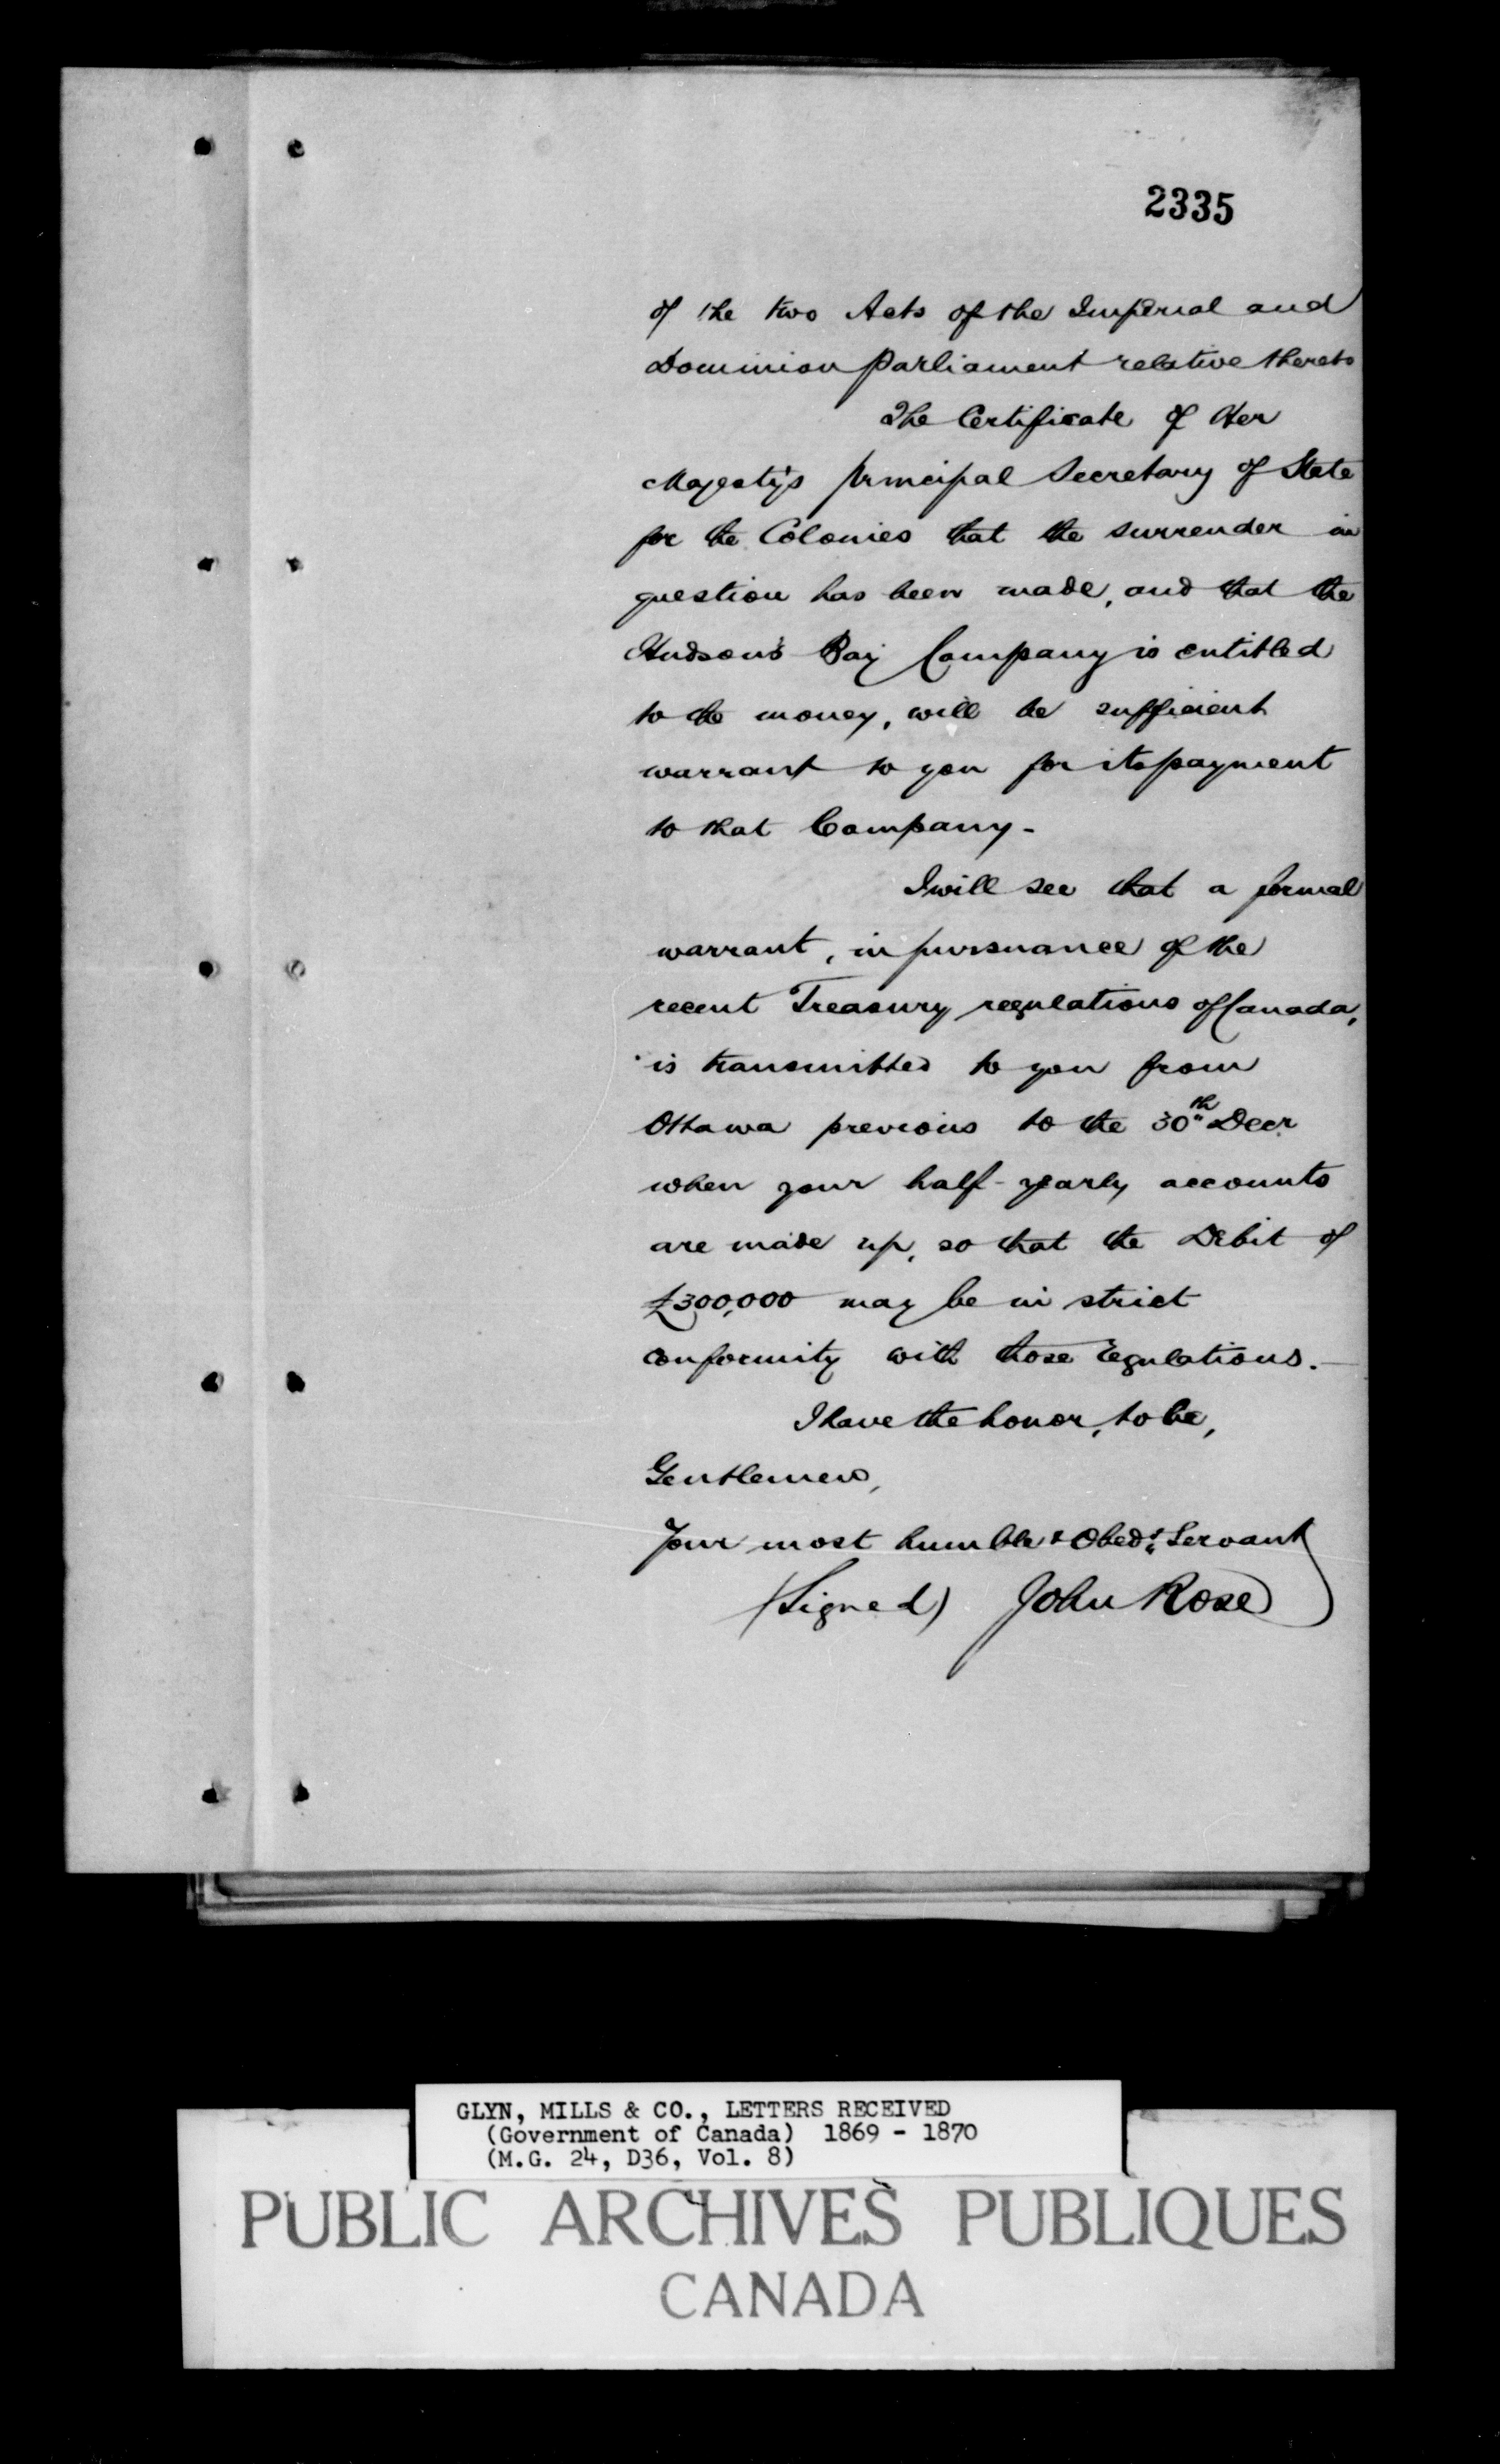 2335
of the two Acts of the Imperial and
Dominion Parliament relative thereto
The Certificate of Her
Majesty's principal Secretary of State
for the Colonies that the surrender in
question has been made, and that the
Hudson's Bay Company is entitled
to the money, will be sufficient
warrant to you for its payment
to that Company -
I will see that a formal
warrant, in pursuance of the
recent Treasury regulations of Canada,
is transmitted to you from
Ottawa previous to the 30th Decr
when your half-yearly accounts
are made up, so that the Debit of
£300,000 may be in strict
conformity with those regulations. -
I have the honor, to be,
Gentlemen,
Your most humble & Obedt Servant
(Signed) John Rose
GLYN, MILLS & CO., LETTERS RECEIVED
(Government of Canada) 1869 - 1870
(M.G. 24, D36, Vol. 8)
PUBLIC ARCHIVES PUBLIQUES
CANADA